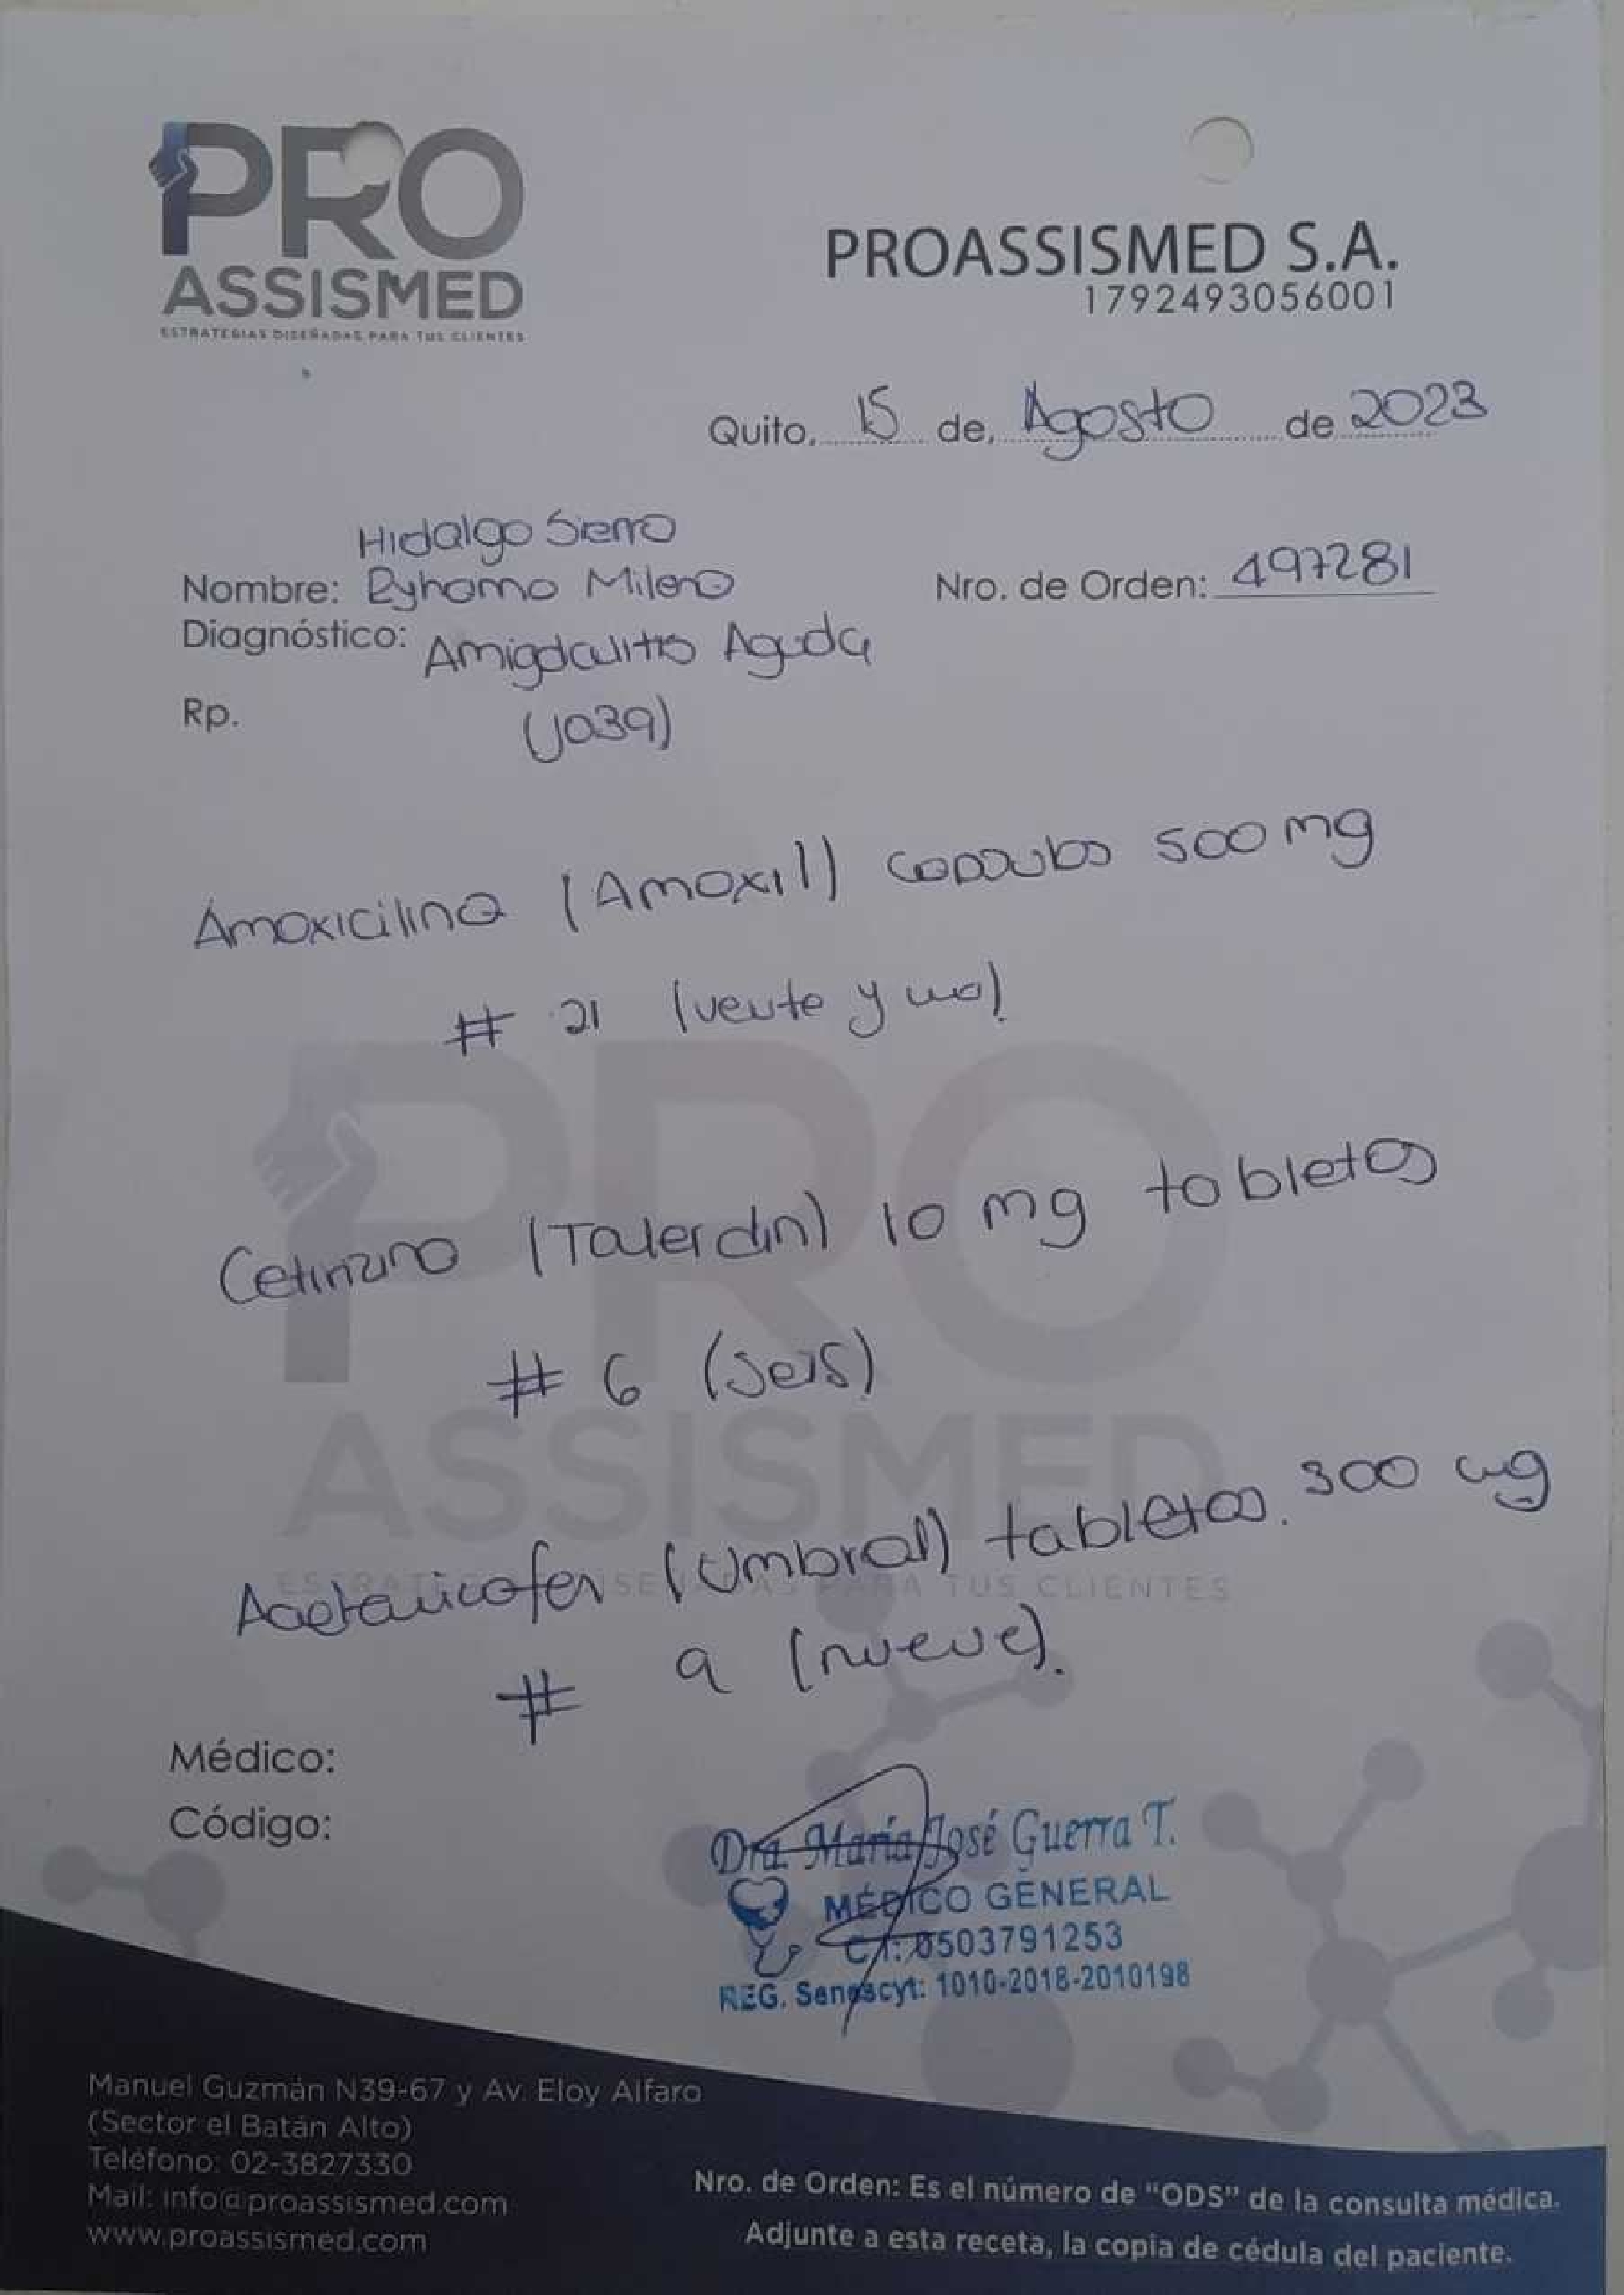 PRO
ASSISMED
ESTRATEGIAS DISEÑADAS PARA TUS CLIENTES
PROASSISMED S.A.
1792493056001
Quito, 15 de, Agosto de 2023
Hidalgo Sierra
Nombre: Milena
Nro. de Orden: 497281
Diagnóstico: Amigdalitis Aguda
Rp. (J039)
Amoxicilina (Amoxil) capsulas 500 mg
# 21 (veinte y uno)
Cetirizina (Talerdin) 10 mg tabletas
# 6 (seis)
Acetaminofen (Umbral) tabletas. 300 mg
# 9 (nueve).
PRO
ASSISMED
ESTRATEGIAS DISEÑADAS PARA TUS CLIENTES
Médico:
Código:
Dra. María José Guerra T.
MÉDICO GENERAL
C.I.: 0503791253
REG. Senescyt: 1010-2018-2010198
Manuel Guzmán N39-67 y Av. Eloy Alfaro
(Sector el Batán Alto)
Teléfono: 02-3827330
Mail: info@proassismed.com
www.proassismed.com
Nro. de Orden: Es el número de "ODS" de la consulta médica.
Adjunte a esta receta, la copia de cédula del paciente.